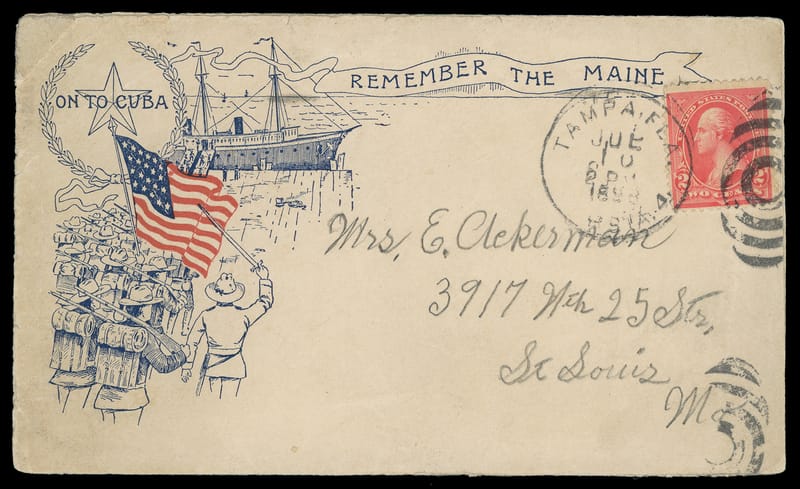 ON TO CUBA
REMEMBER THE MAINE
TAMPA, FLA.
10
UNITED STATES POSTAGE
2 TWO CENTS 2
Mrs. E. Ackerman
3917 Nth 25 Str.
St Louis
Mo